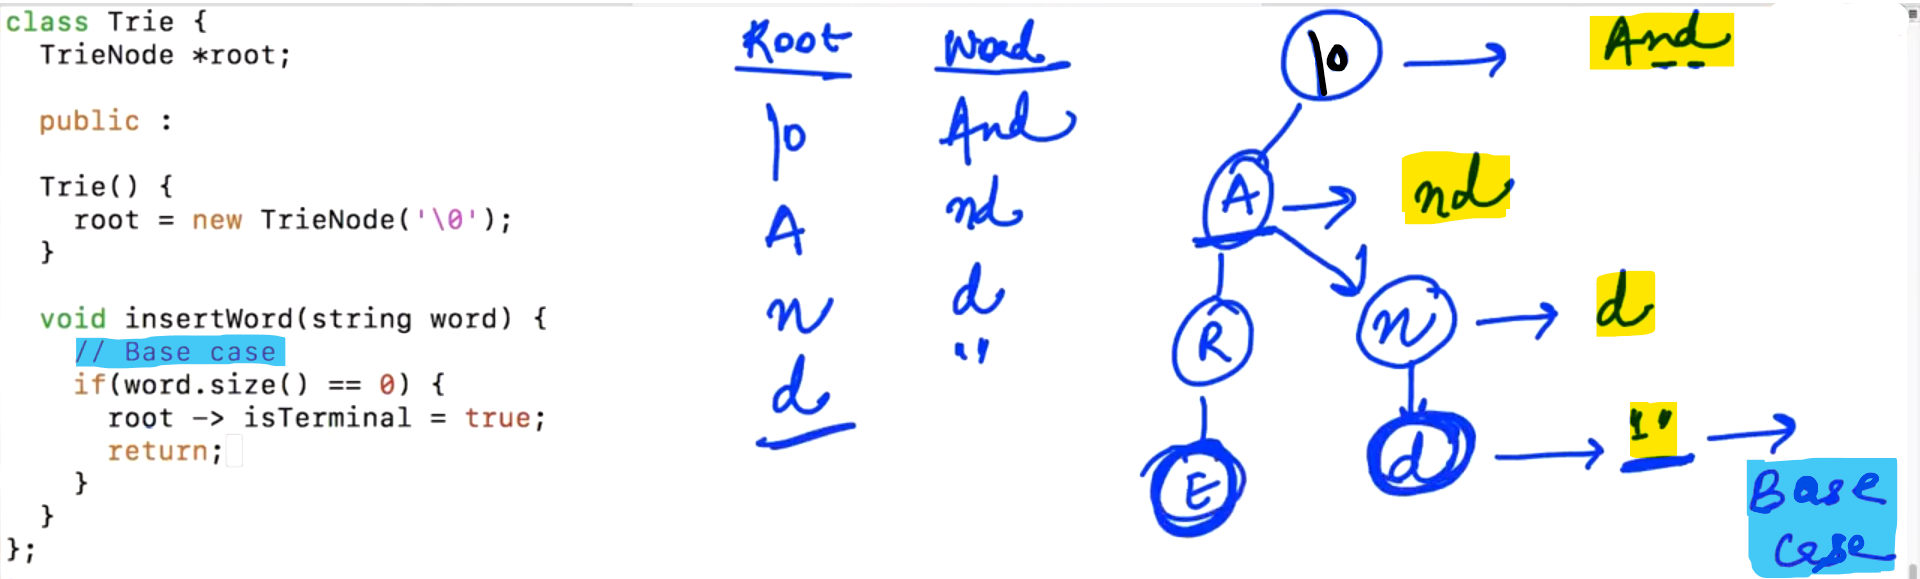 class Trie {
TrieNode *root;
public :
Trie() {
root = new TrieNode('\0');
}
void insertWord(string word) {
// Base case
if(word.size() == 0) {
root -> isTerminal = true;
return;
}
}
};
Root Word
\0 And
A nd
n d
d ""
\0 And
A nd
R n d
E d ""
Base
case